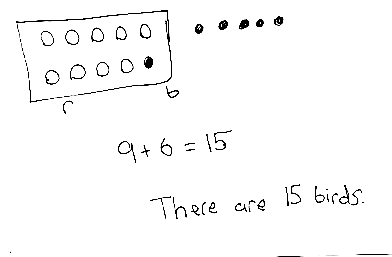 r b
9 + 6 = 15
There are 15 birds.